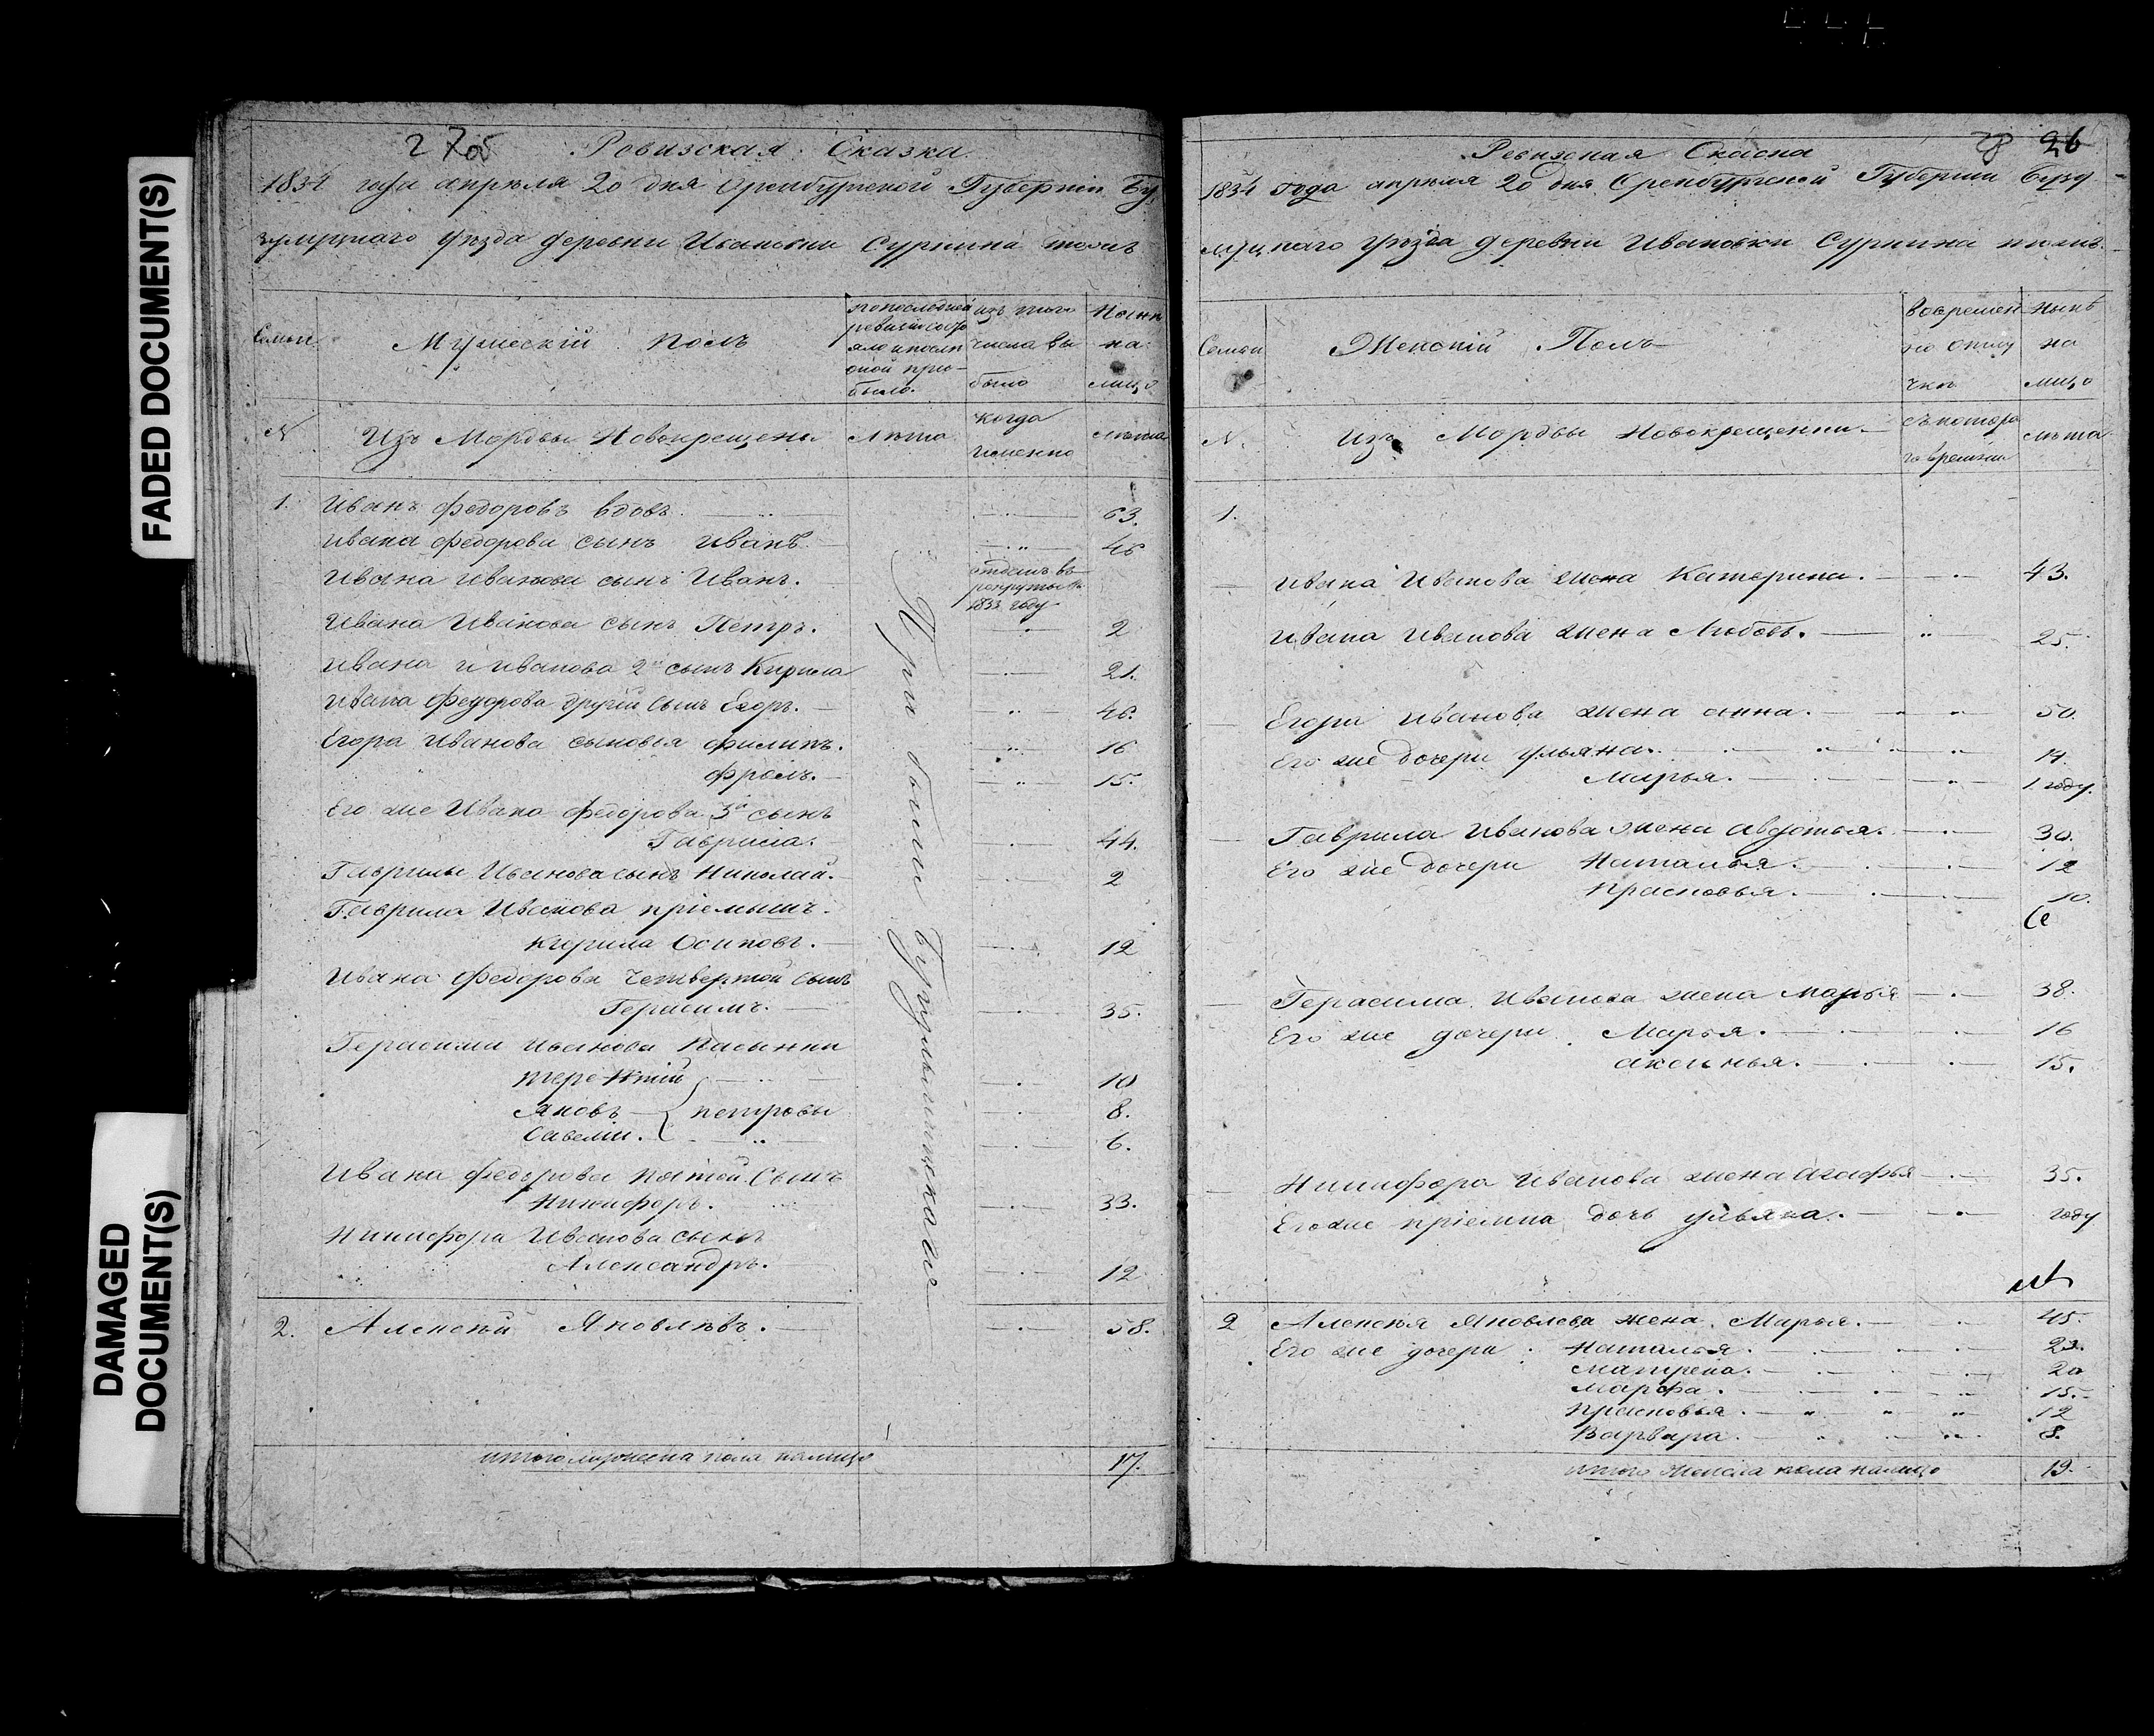 FADED DOCUMENT(S)
DAMAGED
DOCUMENT(S)
Ревизская Сказка
1834 года апреля 20 дня Оренбургской Губернiи Бу
зулуцкаго Уезда деревни Ивановки Суркина тожъ
Семьи
Мужескiй полъ
изъ того
числа вы
было
Ныне
на
лицо
№
Изъ Мордвы Новокрещены
Лета
когда
именно
лета
При бытии Бузулыцкаго
1. Иванъ Федоровъ вдовъ 63.
Ивана Федорова сынъ Иванъ 46
Ивана Иванова сынъ Иванъ. отданъ въ
рекруты въ
1833 году
Ивана Иванова сынъ Петръ. 2
Ивана Иванова 2й сынъ Кирила 21.
Ивана Федорова другiй сынъ Егоръ. 46.
Егора Иванова сыновья Филипъ. 16
Фролъ. 15.
Его же Ивана Федорова 3й сынъ
Гаврила. 44.
Гаврилы Иванова сынъ Николай. 2
Гаврила Иванова прiемышъ.
Осиповъ. 12
Ивана Федорова четвертой сынъ
Герасимъ. 35.
Герасима Иванова пасынки
Терентiй 10
Яковъ петровы 8.
Савелiй. 6.
Ивана Федорова пятой Сынъ
Никифоръ. 33.
Никифора Иванова сынъ
Александръ. 12
2. Алексей Яковлевъ. 58.
итого мужеска пола налицо 17.
28 26
Ревизская Сказка
1834 года апреля 20 дня Оренбургской Губернии Бузу
луцкаго Уезда деревни Ивановки Суркина тожъ.
Семьи
Женскiй Полъ
Ныне
на
лицо
№.
Изъ Мордвы Новокрещенни
съ котора
го времени
лета
1.
Ивана Иванова жена Катерина. 43.
Ивана Иванова жена Любовь. 25.
Егора Иванова жена Анна. 50.
Его же дочери Ульяна. 14.
Марья. 1 году.
Гаврила Иванова жена Авдотья. 30.
Его же дочери Наталья. 12
Прасковья. 10.
Герасима Иванова жена Марья 38.
Его же дочери Марья. 16
Аксинья. 15.
Никифора Иванова жена Агафья 35.
Его же прiемна дочь Ульяна. году
2 Алексея Яковлева жена Марья. 45.
Его же дочери Наталья. 22.
Матрена. 20
Марфа. 15.
Прасковья. 12
Варвара. 8.
итого женска пола налицо 19.